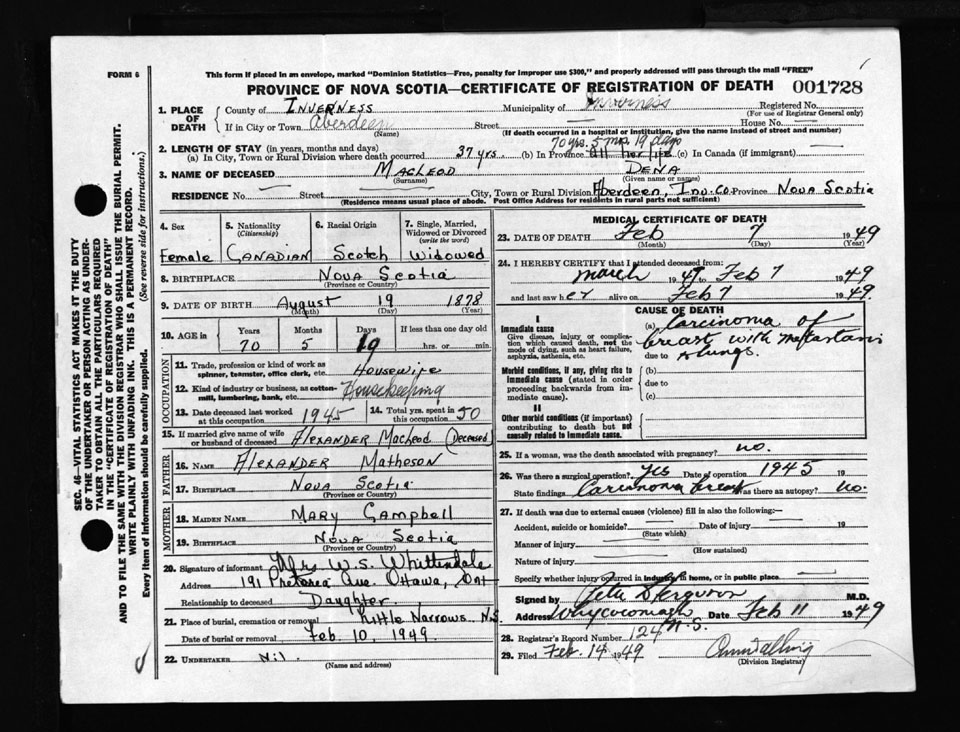 FORM 6
This form if placed in an envelope, marked "Dominion Statistics—Free, penalty for improper use $300," and properly addressed will pass through the mail "FREE"
PROVINCE OF NOVA SCOTIA—CERTIFICATE OF REGISTRATION OF DEATH 001728
1. PLACE OF DEATH County of Inverness Municipality of Inverness Registered No.
(For use of Registrar General only)
If in City or Town Aberdeen Street — House No. —
(Name) (If death occurred in a hospital or institution, give the name instead of street and number)
70 yrs. 5 mo. 19 days
2. LENGTH OF STAY (in years, months and days)
(a) In City, Town or Rural Division where death occurred 37 yrs. (b) In Province all her life (c) In Canada (if immigrant) —
3. NAME OF DECEASED MacLeod Dena
(Surname) (Given name or names)
RESIDENCE No. — Street — City, Town or Rural Division Aberdeen, Inv. Co. Province Nova Scotia
(Residence means usual place of abode. Post Office Address for residents in rural parts not sufficient)
4. Sex Female
5. Nationality (Citizenship) Canadian
6. Racial Origin Scotch
7. Single, Married, Widowed or Divorced (write the word) Widowed
8. BIRTHPLACE Nova Scotia
(Province or Country)
9. DATE OF BIRTH August 19 1878
(Month) (Day) (Year)
10. AGE in Years Months Days If less than one day old
70 5 19 hrs. or min.
OCCUPATION
11. Trade, profession or kind of work as spinner, teamster, office clerk, etc. Housewife
12. Kind of industry or business, as cotton-mill, lumbering, bank, etc. Housekeeping
13. Date deceased last worked at this occupation 1945 14. Total yrs. spent in this occupation 50
15. If married give name of wife or husband of deceased Alexander MacLeod (Deceased)
FATHER
16. NAME Alexander Matheson
17. BIRTHPLACE Nova Scotia
(Province or Country)
MOTHER
18. MAIDEN NAME Mary Campbell
19. BIRTHPLACE Nova Scotia
(Province or Country)
20. Signature of informant Mrs. W. S. Whittendale
Address 191 Pretoria Ave. Ottawa, Ont
Relationship to deceased Daughter.
21. Place of burial, cremation or removal Little Narrows N.S.
Date of burial or removal Feb. 10, 1949.
22. UNDERTAKER Nil.
(Name and address)
MEDICAL CERTIFICATE OF DEATH
23. DATE OF DEATH Feb 7 1949
(Month) (Day) (Year)
24. I HEREBY CERTIFY that I attended deceased from:
March 1947 to Feb 7 1949
and last saw her alive on Feb 7 1949.
CAUSE OF DEATH
I
Immediate cause
Give disease, injury or complication which caused death, not the mode of dying, such as heart failure, asphyxia, asthenia, etc.
(a) Carcinoma of
breast with metastasis
due to lungs.
Morbid conditions, if any, giving rise to immediate cause (stated in order proceeding backwards from immediate cause).
(b)
due to
(c)
II
Other morbid conditions (if important) contributing to death but not causally related to immediate cause.
25. If a woman, was the death associated with pregnancy? no.
26. Was there a surgical operation? yes Date of operation 1945 19
State findings Carcinoma breast Was there an autopsy? no.
27. If death was due to external causes (violence) fill in also the following:—
Accident, suicide or homicide? Date of injury 19
(State which)
Manner of injury
(How sustained)
Nature of injury
Specify whether injury occurred in industry, in home, or in public place
Signed by Pete S Ferguson M.D.
Address Whycocomagh N.S. Date Feb 11 1949
28. Registrar's Record Number 124
29. Filed Feb. 14 1949
(Division Registrar)
SEC. 46—VITAL STATISTICS ACT MAKES IT THE DUTY
OF THE UNDERTAKER OR PERSON ACTING AS UNDER-
TAKER TO OBTAIN ALL THE PARTICULARS REQUIRED
IN THE "CERTIFICATE OF REGISTRATION OF DEATH"
AND TO FILE THE SAME WITH THE DIVISION REGISTRAR WHO SHALL ISSUE THE BURIAL PERMIT.
WRITE PLAINLY WITH UNFADING INK. THIS IS A PERMANENT RECORD.
Every item of information should be carefully supplied. (See reverse side for instructions.)